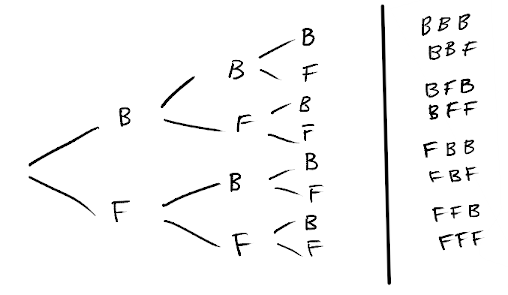 B
F
B
F
B
F
B
F
B
F
B
F
B
F
BBB
BBF
BFB
BFF
FBB
FBF
FFB
FFF